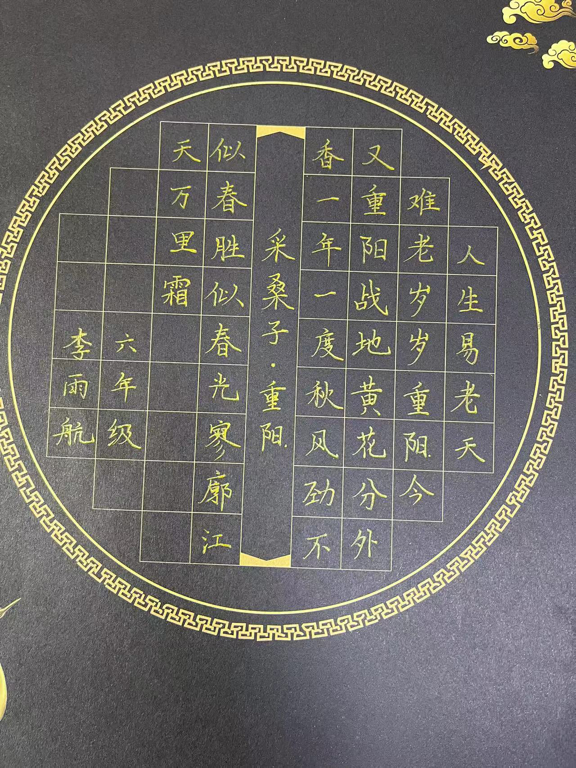 人生易老天
难老岁岁重阳今
又重阳战地黄花分外
香一年一度秋风劲不
采桑子·重阳
似春胜似春光寥廓江
天万里霜
六年级
李雨航